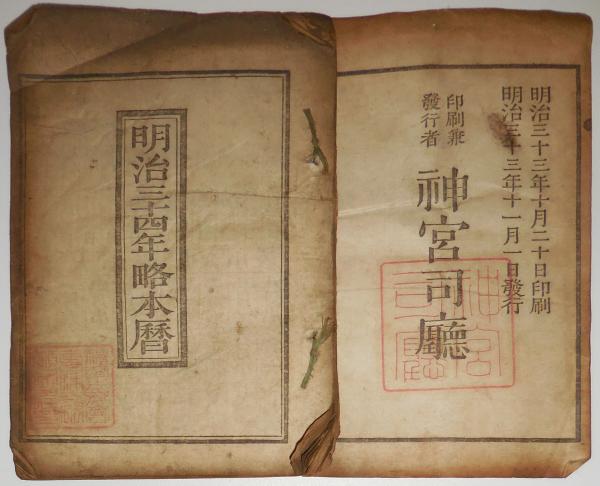 明治三十四年略本暦
明治三十三年十月二十日印刷
明治三十三年十一月一日發行
印刷兼
發行者
神宮司廳
神宮
司廳